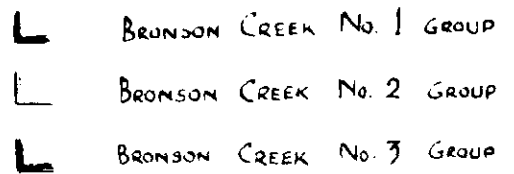 BRONSON CREEK No. 1 GROUP
BRONSON CREEK No. 2 GROUP
BRONSON CREEK No. 3 GROUP